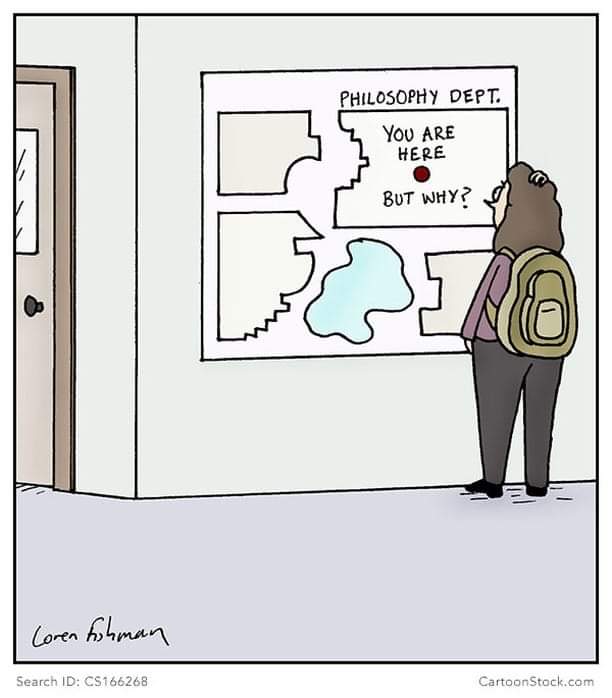 PHILOSOPHY DEPT.
YOU ARE
HERE
BUT WHY?
Loren Fishman
Search ID: CS166268
CartoonStock.com